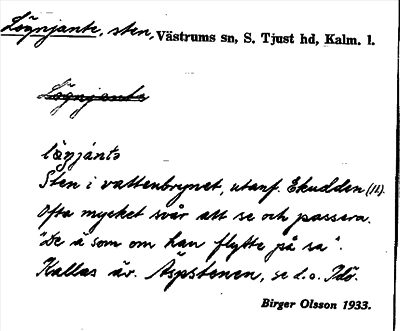 Lögnjante, sten, Västrums sn, S. Tjust hd, Kalm. l.
Lögnjante
lögjántə
Sten i vattenbrynet, utanf. Ekudden (12).
Ofta mycket svår att se och passera.
"De ä som om han flytte på sa".
Kallas äv. Äspstenen, se d.o. Idö.
Birger Olsson 1933.